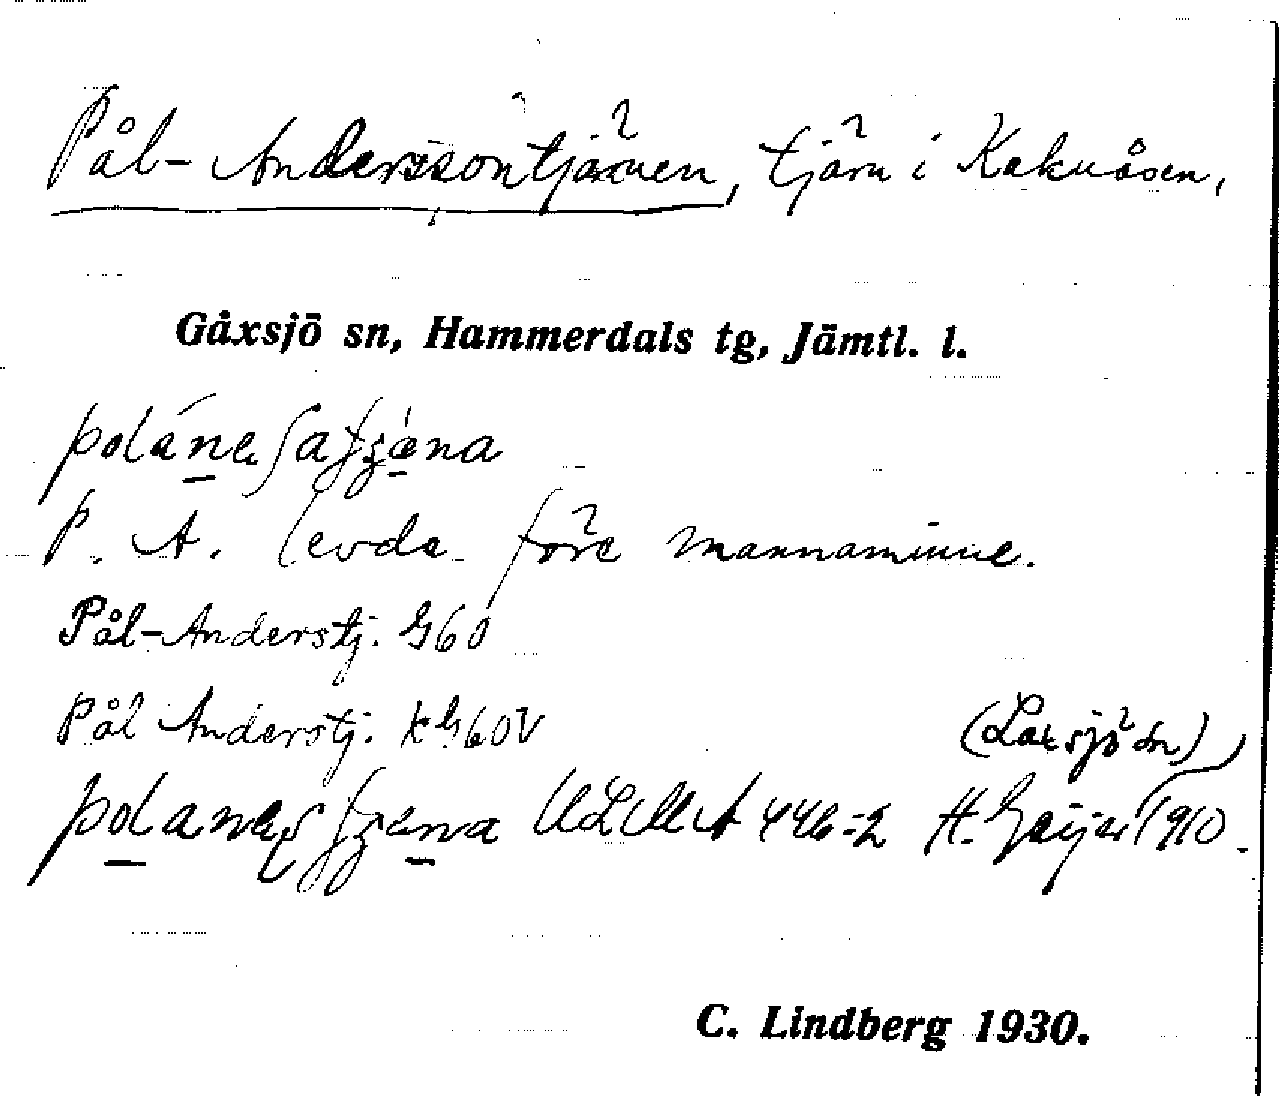 Pål-Anderssontjärnen, tjärn i Kakuåsen,
Gåxsjö sn, Hammerdals tg, Jämtl. l.
P. A. levde före mannaminne.
Pål-Anderstj. G60
Pål Anderstj. kG60V
(Laxsjö sn)
ULMA 446:2 H. Geijer 1910.
C. Lindberg 1930.